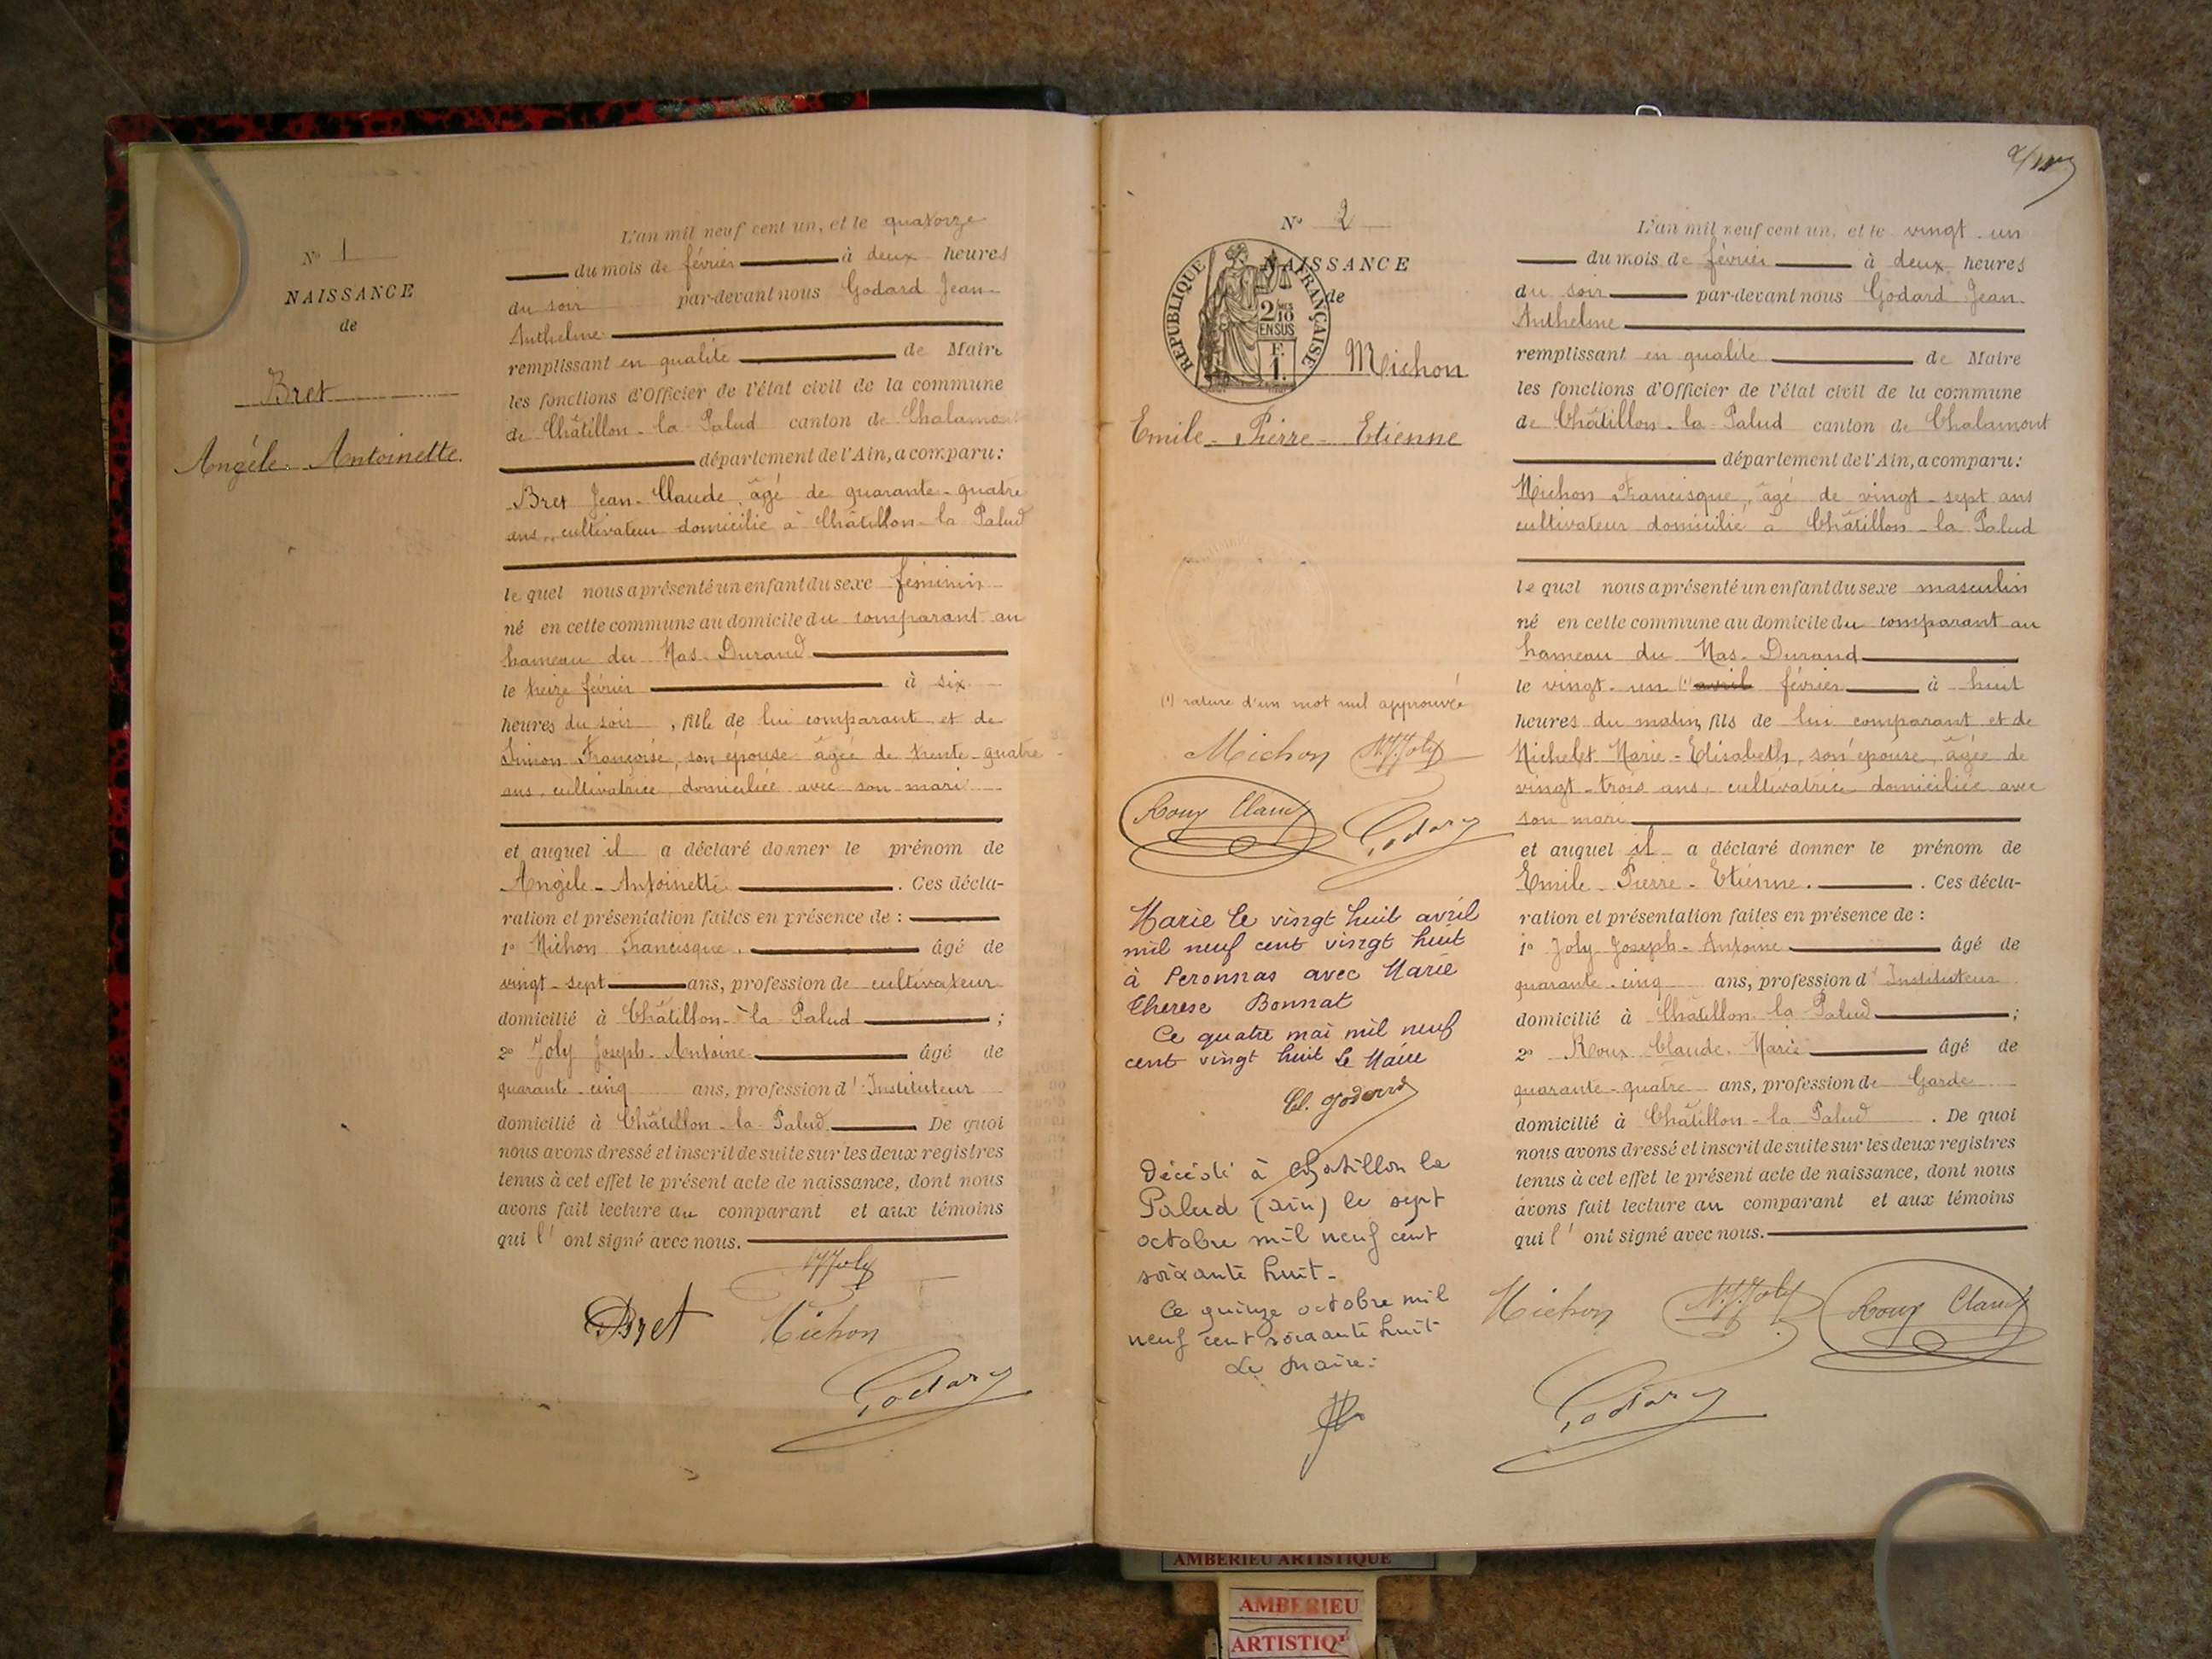 N° 1
NAISSANCE
de
Bret
Angèle Antoinette
L'an mil neuf cent un, et le quatorze
du mois de février à deux heures
du soir par-devant nous Godard Jean-
Anthelme
remplissant en qualité de Maire
les fonctions d'Officier de l'état civil de la commune
de Châtillon-la Palud canton de Chalamont
département de l'Ain, a comparu:
Bret Jean-Claude, âgé de quarante-quatre
ans, cultivateur domicilié à Châtillon-la Palud
le quel nous a présenté un enfant du sexe féminin
né en cette commune au domicile du comparant au
hameau du Mas-Durand
le treize février à six
heures du soir, fille de lui comparant et de
Simon Françoise, son épouse âgée de trente-quatre
ans, cultivatrice, domiciliée avec son mari
et auquel il a déclaré donner le prénom de
Angèle-Antoinette. Ces décla-
ration et présentation faites en présence de :
1° Michon Francisque. âgé de
vingt-sept ans, profession de cultivateur
domicilié à Châtillon-la Palud ;
2° Joly Joseph-Antoine âgé de
quarante-cinq ans, profession d'Instituteur
domicilié à Châtillon-la Palud. De quoi
nous avons dressé et inscrit de suite sur les deux registres
tenus à cet effet le présent acte de naissance, dont nous
avons fait lecture au comparant et aux témoins
qui l'ont signé avec nous.
Joly
Bret Michon
Godard
N° 2
NAISSANCE
de
RÉPUBLIQUE FRANÇAISE
2/10 EN SUS
F. 1.
Michon
Emile-Pierre-Etienne
(1) rature d'un mot nul approuvée
Michon Joly
Roux Claude Godard
Marie le vingt huit avril
mil neuf cent vingt huit
à Peronnas avec Marie
Therese Bonnat
Ce quatre mai mil neuf
cent vingt huit Le Maire
Cl. Godard
Décédé à Chatillon la
Palud (ain) le sept
octobre mil neuf cent
soixante huit-
Ce quinze octobre mil
neuf cent soixante huit
Le Maire:
L'an mil neuf cent un, et le vingt-un
du mois de février à deux heures
du soir par-devant nous Godard Jean-
Anthelme
remplissant en qualité de Maire
les fonctions d'Officier de l'état civil de la commune
de Châtillon-la-Palud canton de Chalamont
département de l'Ain, a comparu:
Michon Francisque, âgé de vingt-sept ans
cultivateur domicilié à Châtillon-la Palud
le quel nous a présenté un enfant du sexe masculin
né en cette commune au domicile du comparant au
hameau du Mas-Durand
le vingt-un (1) avril février à huit
heures du matin, fils de lui comparant et de
Michelet Marie-Elisabeth, son épouse, âgée de
vingt-trois ans, cultivatrice domiciliée avec
son mari
et auquel il a déclaré donner le prénom de
Emile-Pierre-Etienne. Ces décla-
ration et présentation faites en présence de :
1° Joly Joseph-Antoine âgé de
quarante-cinq ans, profession d'Instituteur
domicilié à Châtillon-la Palud ;
2° Roux Claude-Marie âgé de
quarante-quatre ans, profession de Garde
domicilié à Châtillon-la Palud. De quoi
nous avons dressé et inscrit de suite sur les deux registres
tenus à cet effet le présent acte de naissance, dont nous
avons fait lecture au comparant et aux témoins
qui l'ont signé avec nous.
Michon Joly Roux Claude
Godard
AMBERIEU ARTISTIQUE
AMBERIEU
ARTISTIQ